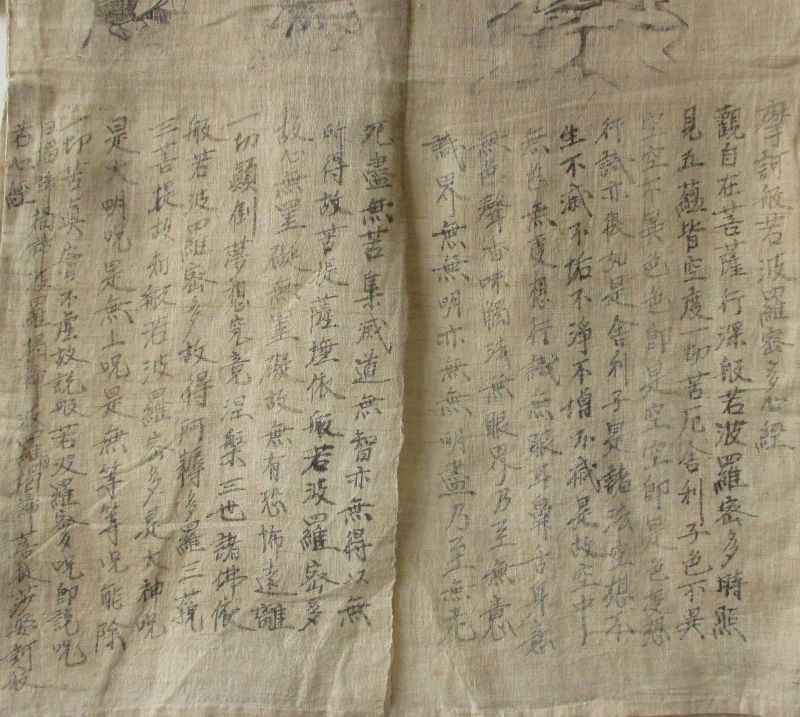 摩訶般若波羅密多心經
觀自在菩薩行深般若波羅密多時照
見五蘊皆空度一切苦厄舍利子色不異
空空不異色色即是空空即是色受想
行識亦復如是舍利子是諸法空想不
生不滅不垢不淨不增不減是故空中
無色無受想行識無眼耳鼻舌身意
無色聲香味觸法無眼界乃至無意
識界無無明亦無無明盡乃至無老
死盡無苦集滅道無智亦無得以無
所得故菩提薩埵依般若波羅密多
故心無罣礙無罣礙故無有恐怖遠離
一切顛倒夢想究竟涅槃三世諸佛依
般若波羅密多故得阿耨多羅三藐
三菩提故知般若波羅密多是大神呪
是大明呪是無上呪是無等等呪能除
一切苦真實不虛故說般若波羅密多呪即說呪
曰揭諦揭諦波羅揭諦波羅僧揭諦菩提莎婆訶般
若心經